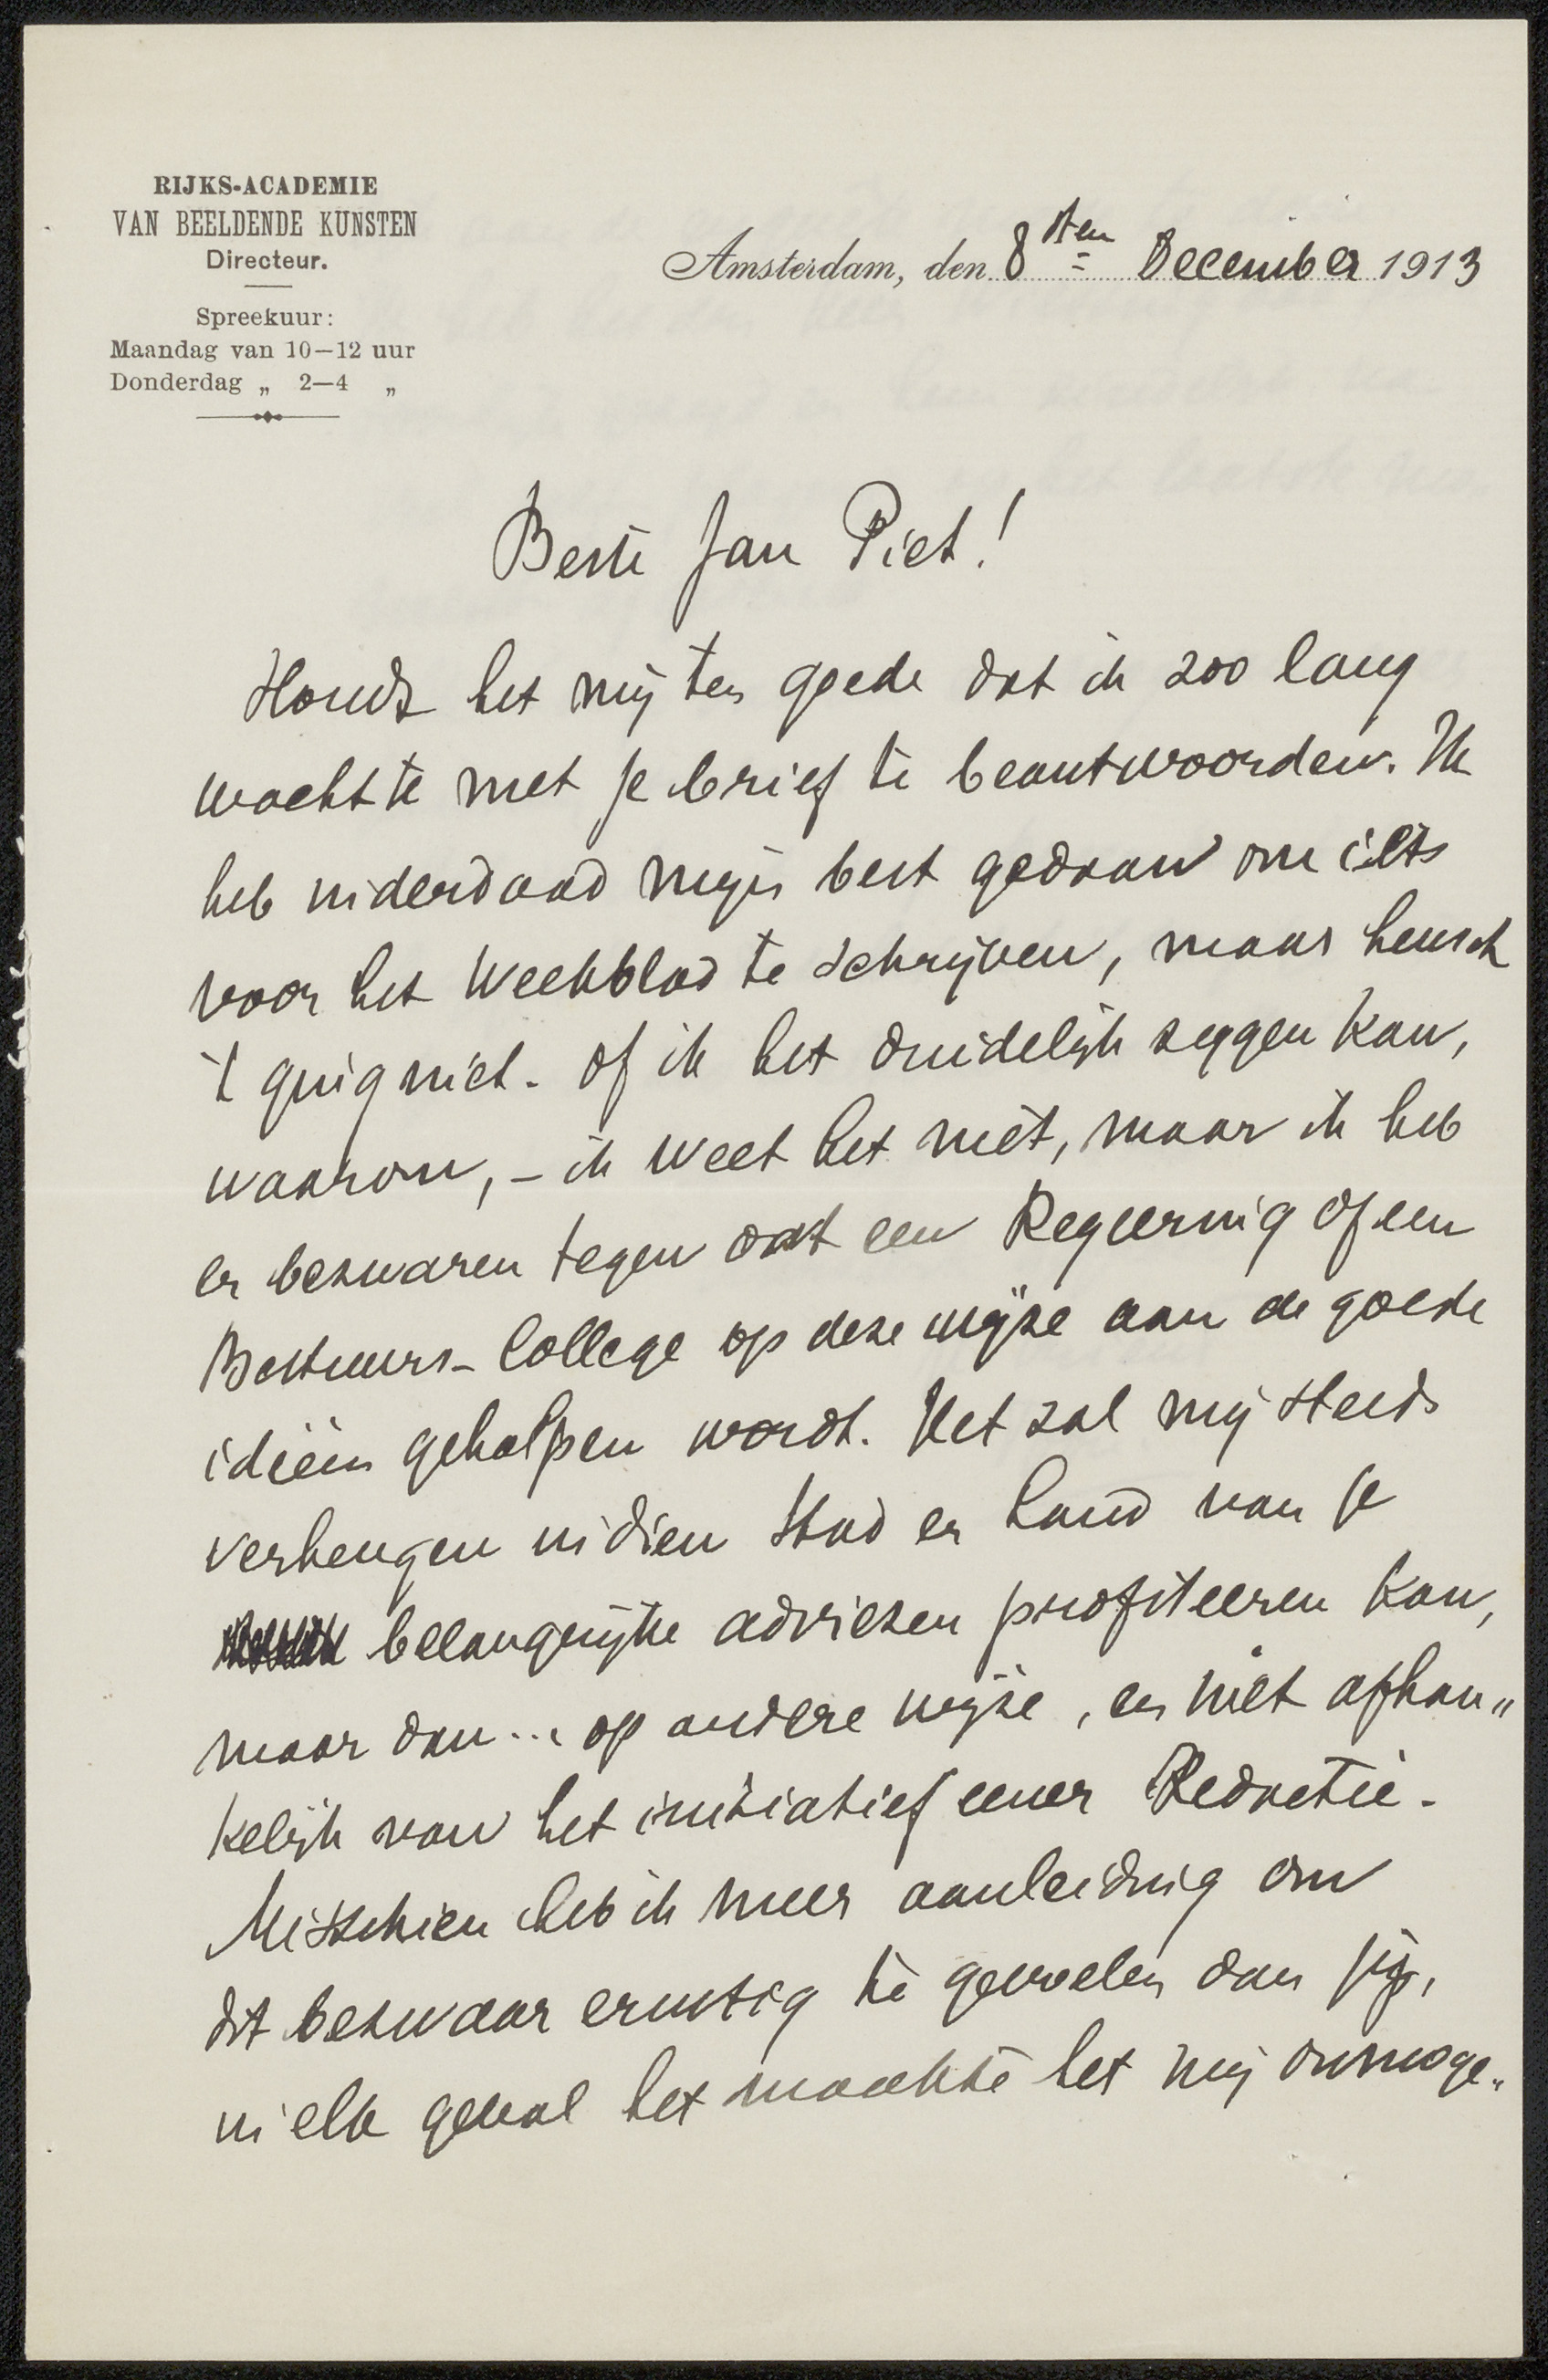 RIJKS-ACADEMIE
VAN BEELDENDE KUNSTEN
Directeur.
Spreekuur:
Maandag van 10—12 uur
Donderdag „ 2—4 „
Amsterdam, den 8sten December 1913
Beste Jan Piet!
Houdt het mij ten goede dat ik zoo lang
wachtte met je brief te beantwoorden. Ik
heb inderdaad mijn best gedaan om iets
voor het Weekblad te schrijven, maar heusch
't ging niet. Of ik het duidelijk zeggen kan,
waarom, – ik weet het niet, maar ik heb
er bezwaren tegen dat een Regeering of een
Bestuurs-College op deze wijze aan de goede
ideëen geholpen wordt. Het zal mij steeds
verheugen indien Stad en Land van je
belangrijke adviezen profiteeren kan,
maar dan... op andere wijze, en niet afhan„
kelijk van het initiatief eener Redactie.
Misschien heb ik meer aanleiding om
dit bezwaar ernstig te gevoelen dan jij,
in elk geval het maakte het mij onmoge„